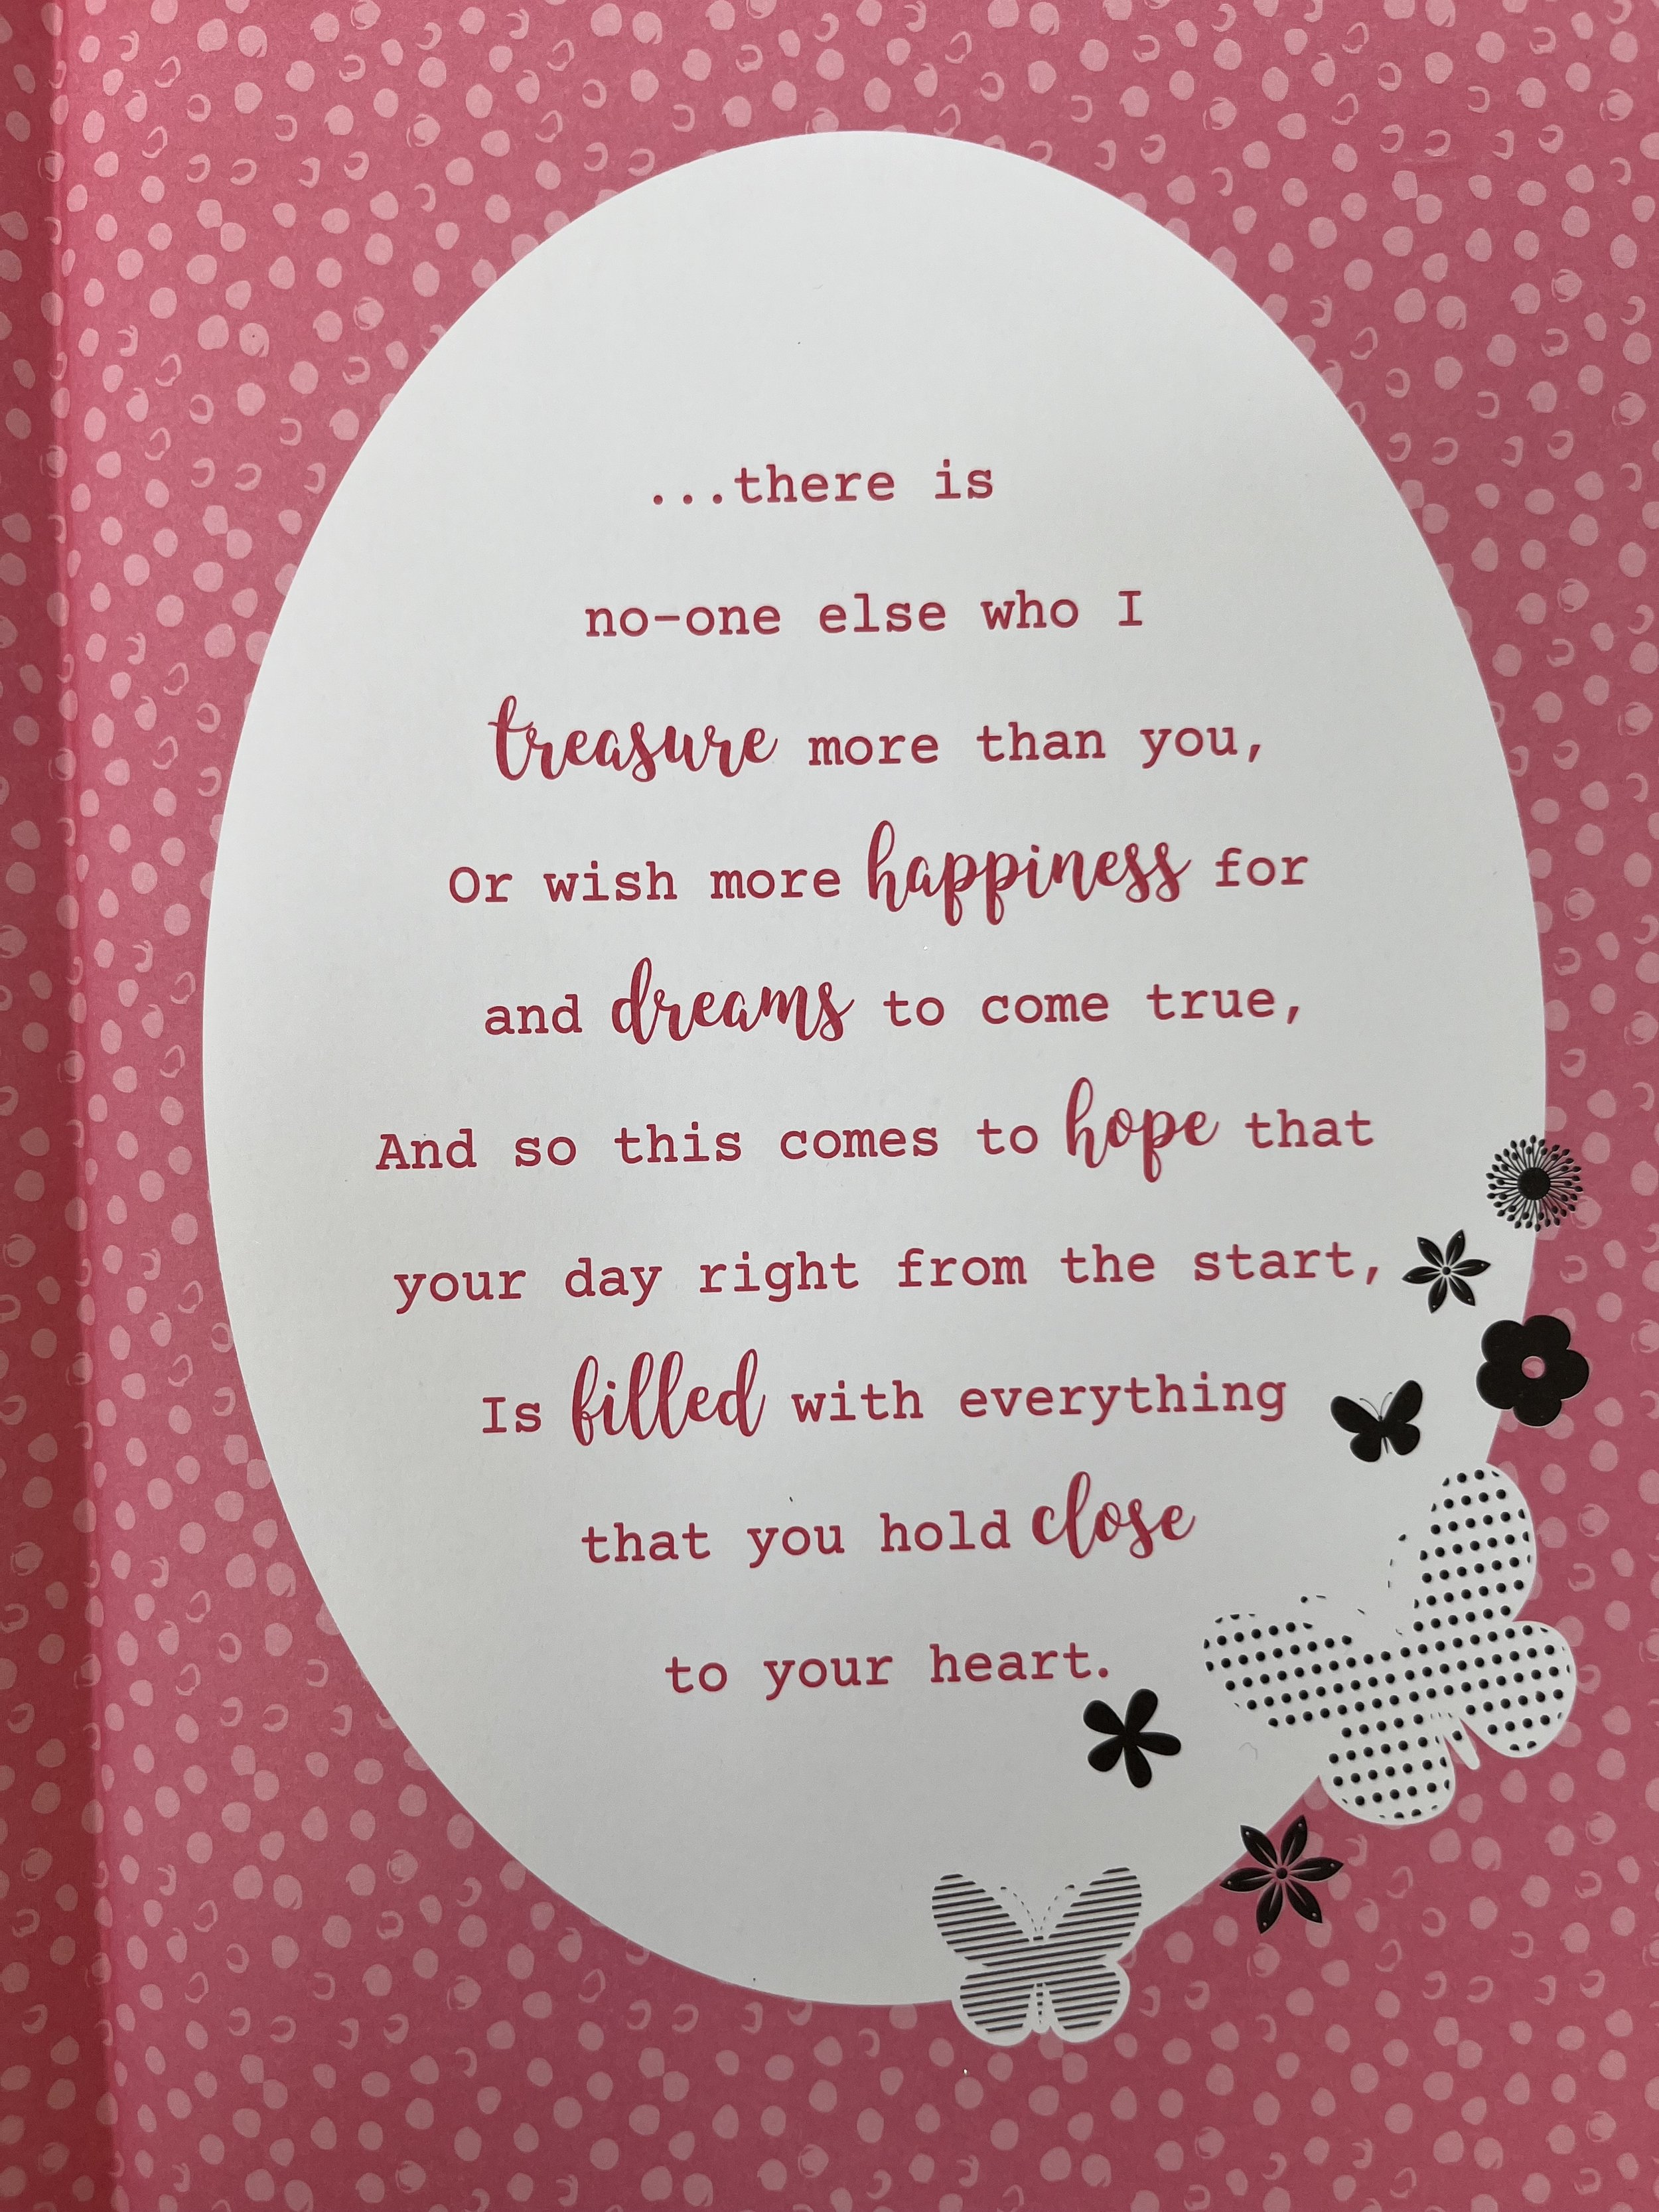 ...there is
no-one else who I
treasure more than you,
Or wish more happiness for
and dreams to come true,
And so this comes to hope that
your day right from the start,
Is filled with everything
that you hold close
to your heart.